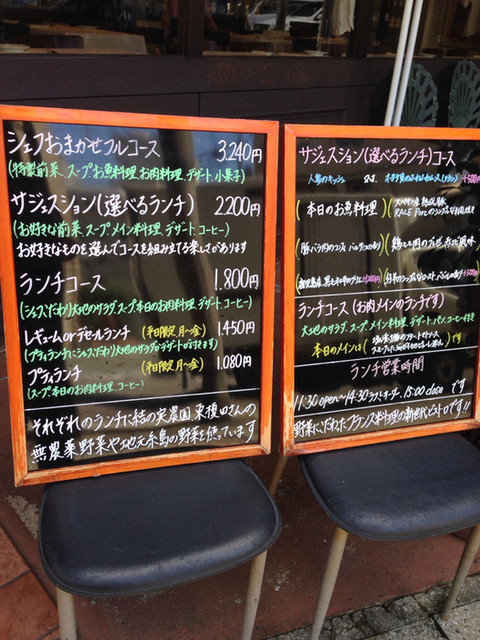 シェフおまかせフルコース 3,240円
(特製前菜、スープお魚料理、お肉料理、デザート、小菓子)
サジェスション(選べるランチ) 2.200円
(お好きな前菜、スープメイン料理、デザート、コーヒー)
お好きなものを選んでコースを組み立てる楽しさがあります
ランチコース 1.800円
(シェフこだわり大地のサラダ、スープ本日のお肉料理、デザート、コーヒー)
レギュームorデセールランチ (平日限定 月〜金) 1.450円
(プティランチにシェフこだわり大地のサラダかデザートが付きます)
プティランチ (平日限定 月〜金) 1.080円
(スープ本日のお肉料理、コーヒー)
それぞれのランチに結の実農園 東槙口さんの
無農薬野菜や地元糸島の野菜を使っています
サジェスション(選べるランチ)コース
+500円
(本日のお魚料理)
豚バラ肉のコンフィ
鶏モモ肉のブレゼ 風味
ランチコース(お肉メインのランチです)
大地のサラダ、スープ、メイン料理、デザート、パン、コーヒー付き
本日のメインは( )です
ランチ営業時間
11:30 open〜14:30 ラストオーダー、15:00 close です
野菜にこだわったフランス料理の新世代ビストロです!!